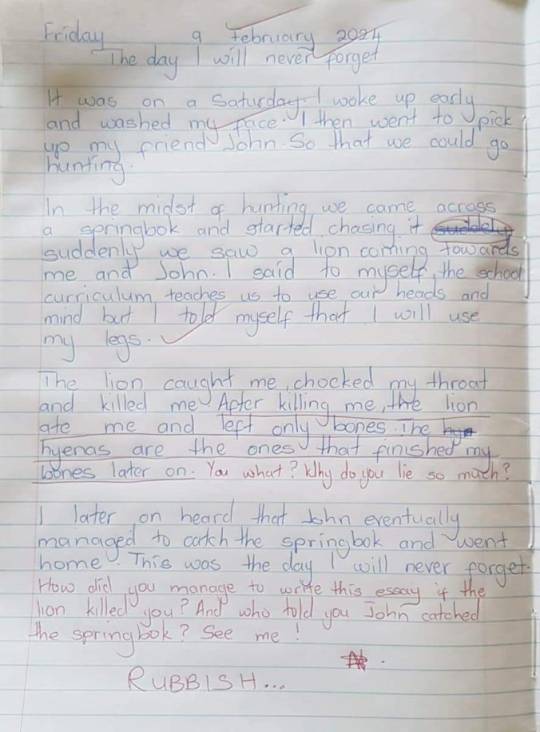 Friday 9 february 2024
The day I will never forget
It was on a Saturday. I woke up early
and washed my face. I then went to pick
up my friend John. So that we could go
hunting.
In the midst of hunting we came across
a springbok and started chasing it suddely
suddenly we saw a lion coming towards
me and John. I said to myself, the school
curriculum teaches us to use our heads and
mind but I told myself that I will use
my legs.
The lion caught me, chocked my throat
and killed me. After killing me, the lion
ate me and left only bones. The hyn
hyenas are the ones that finished my
bones later on. You what? Why do you lie so much?
I later on heard that John eventually
managed to catch the springbok and went
home. This was the day I will never forget.
How did you manage to write this essay if the
lion killed you? And who told you John catched
the springbok? See me!
RUBBISH...